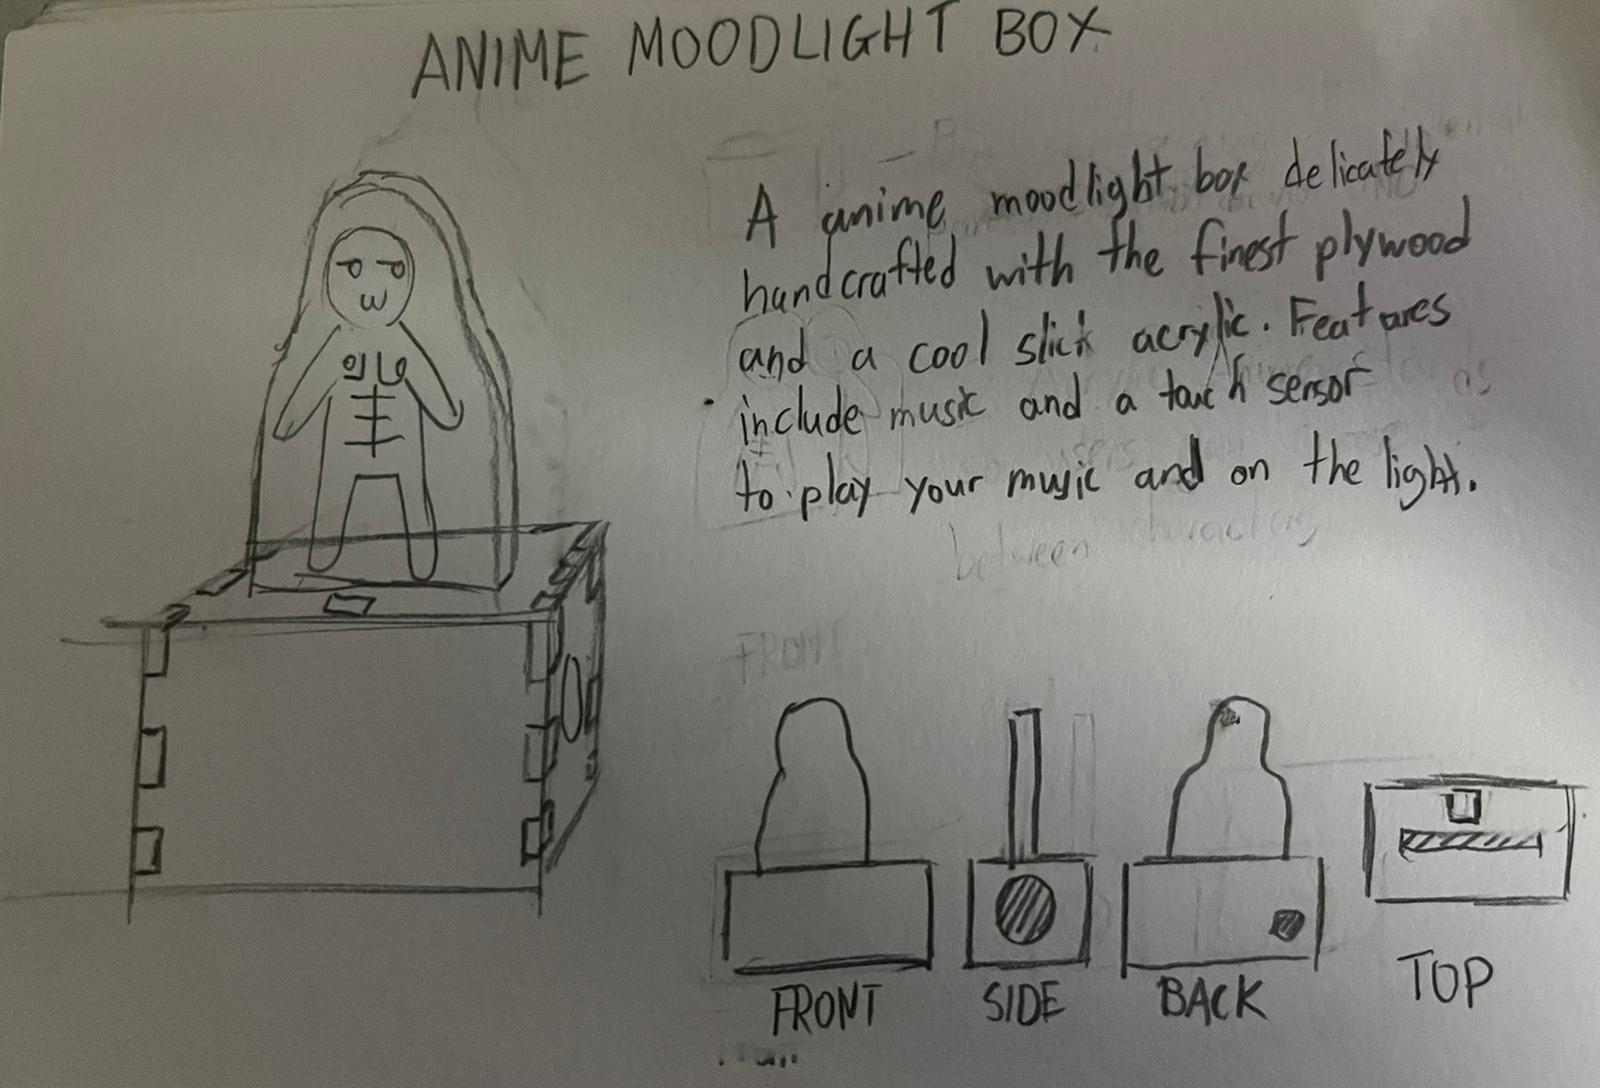 ANIME MOODLIGHT BOX
A anime moodlight box delicately
handcrafted with the finest plywood
and a cool slick acrylic. Features
include music and a touch sensor
to play your music and on the light.
between characters
FRONT
FRONT
SIDE
BACK
TOP